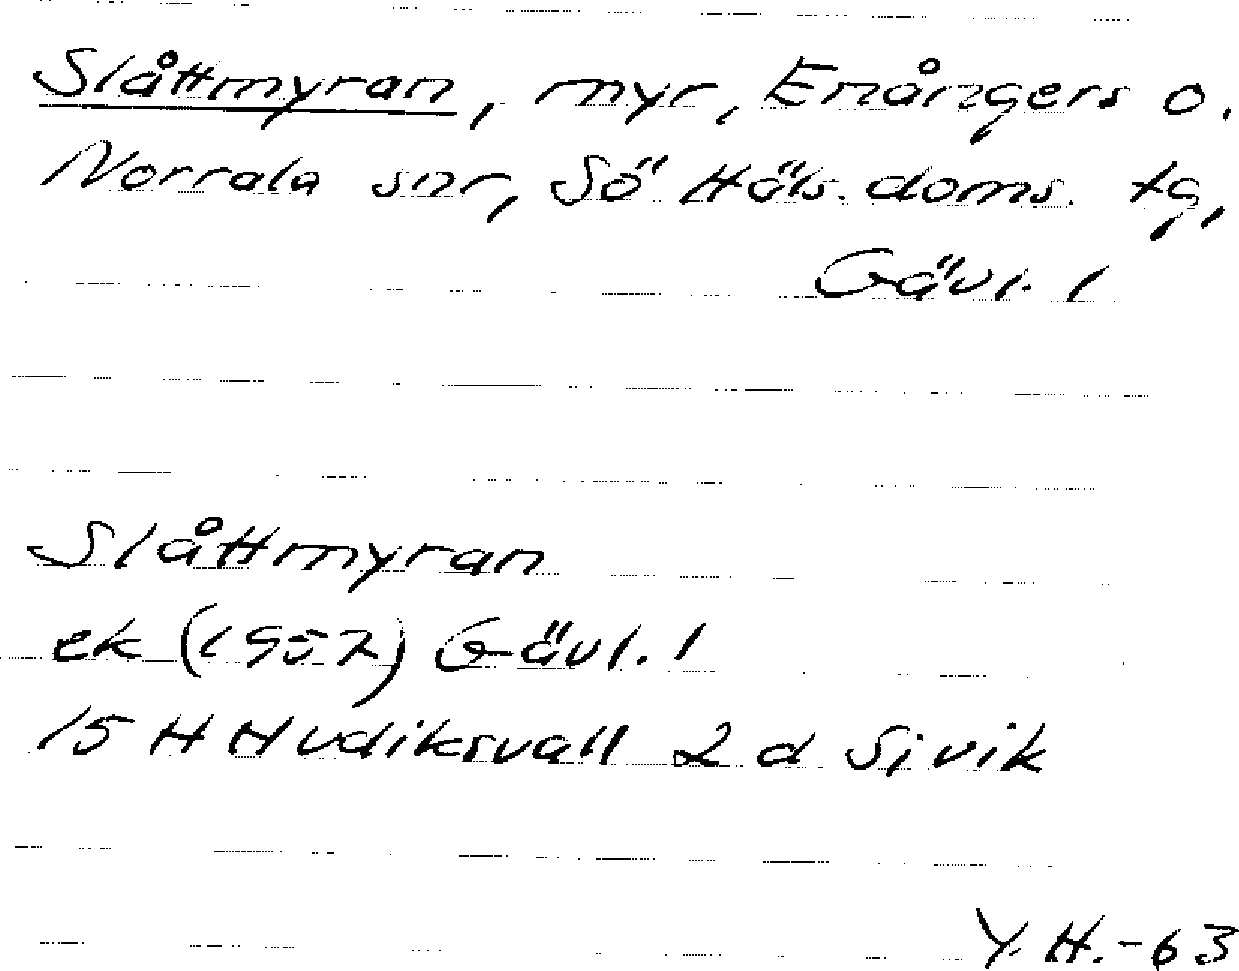 Slåttmyran, myr, Enångers o.
Norrala snr, Sö Häls. doms. tg,
Gävl. l
Slåttmyran
ek (1957) Gävl. l
15 H Hudiksvall 2 d Sivik
Y.H.-63